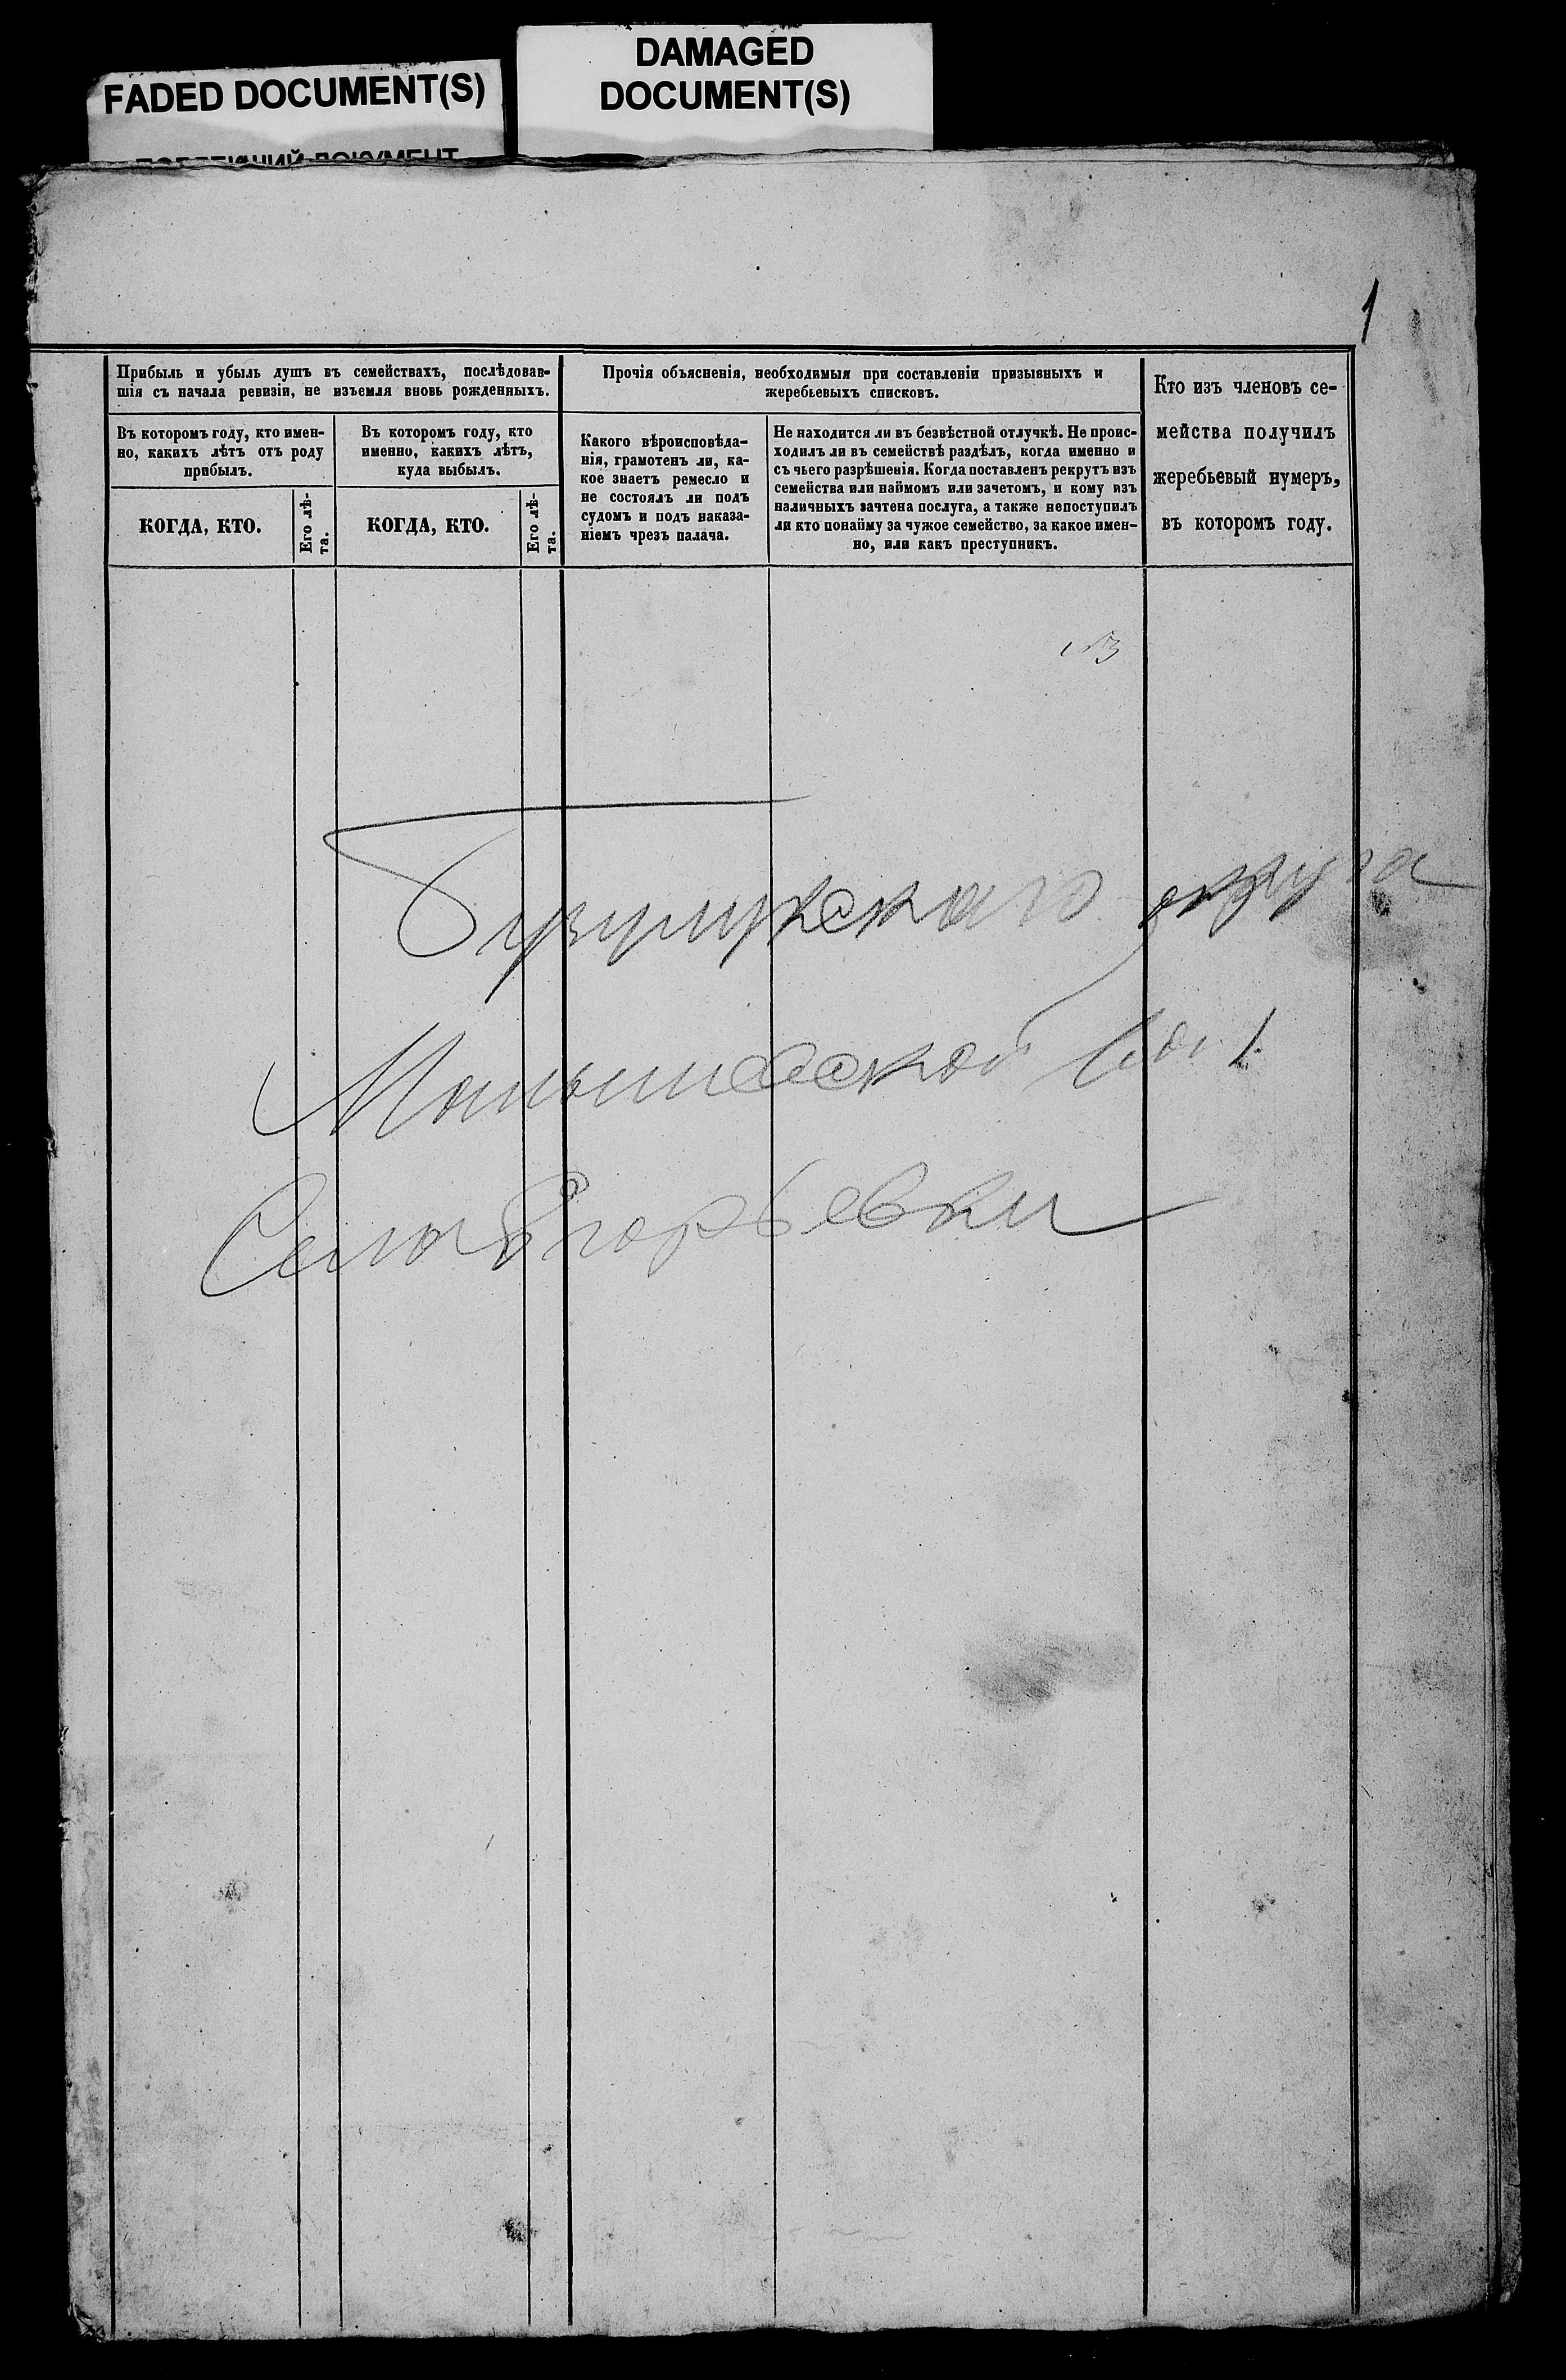 FADED DOCUMENT(S)
DAMAGED
DOCUMENT(S)
1
Прибыль и убыль душъ въ семействахъ, послѣдовав-
шія съ начала ревизіи, не изъемля вновь рожденныхъ.
Въ которомъ году, кто имен-
но, какихъ лѣтъ отъ роду
прибылъ.
КОГДА, КТО.
Его лѣ-
та.
Въ которомъ году, кто
именно, какихъ лѣтъ,
куда выбылъ.
КОГДА, КТО.
Его лѣ-
та.
Прочія объясненія, необходимыя при составленіи призывныхъ и
жеребьевыхъ списковъ.
Какого вѣроисповѣда-
нія, грамотенъ ли, ка-
кое знаетъ ремесло и
не состоялъ ли подъ
судомъ и подъ наказа-
ніемъ чрезъ палача.
Не находится ли въ безвѣстной отлучкѣ. Не проис-
ходилъ ли въ семействѣ раздѣлъ, когда именно и
съ чьего разрѣшенія. Когда поставленъ рекрутъ изъ
семейства или наймомъ или зачетомъ, и кому изъ
наличныхъ зачтена послуга, а также непоступилъ
ли кто понайму за чужое семейство, за какое имен-
но, или какъ преступникъ.
Кто изъ членовъ се-
мейства получилъ
жеребьевый нумеръ,
въ которомъ году.
округа
Села Егорьевки